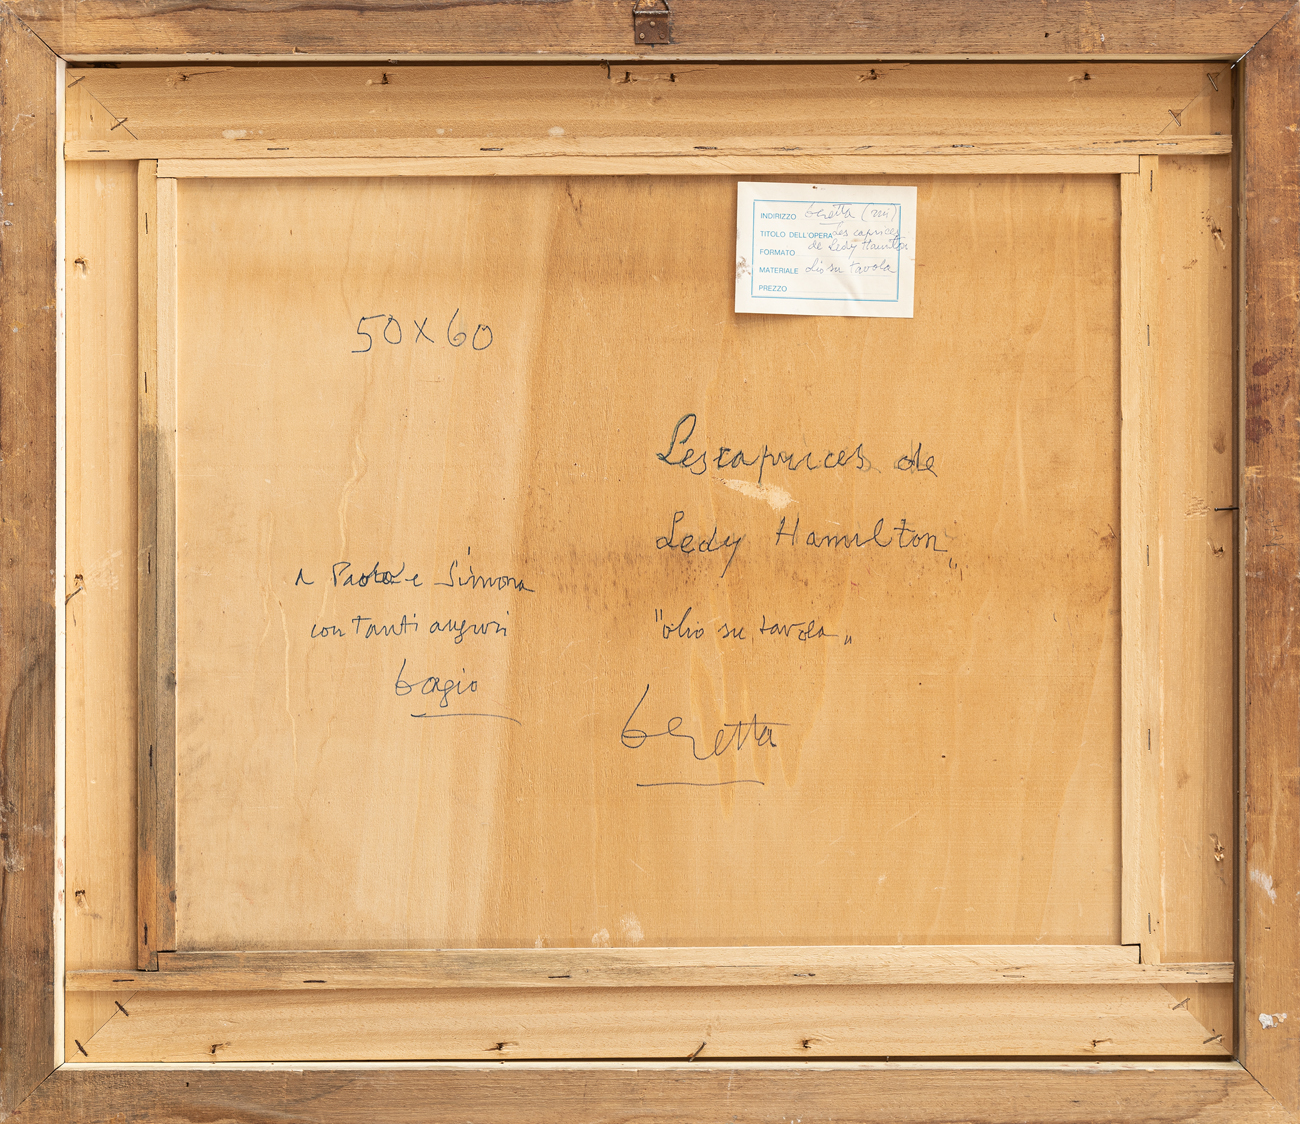 INDIRIZZO beretta (mi)
TITOLO DELL'OPERA les caprices
de Ledy Hamilton
FORMATO
MATERIALE olio su tavola
PREZZO
50 x 60
Les caprices de
Ledy Hamilton"
a Paolo e Simona
con tanti auguri
bagio
"olio su tavola"
beretta